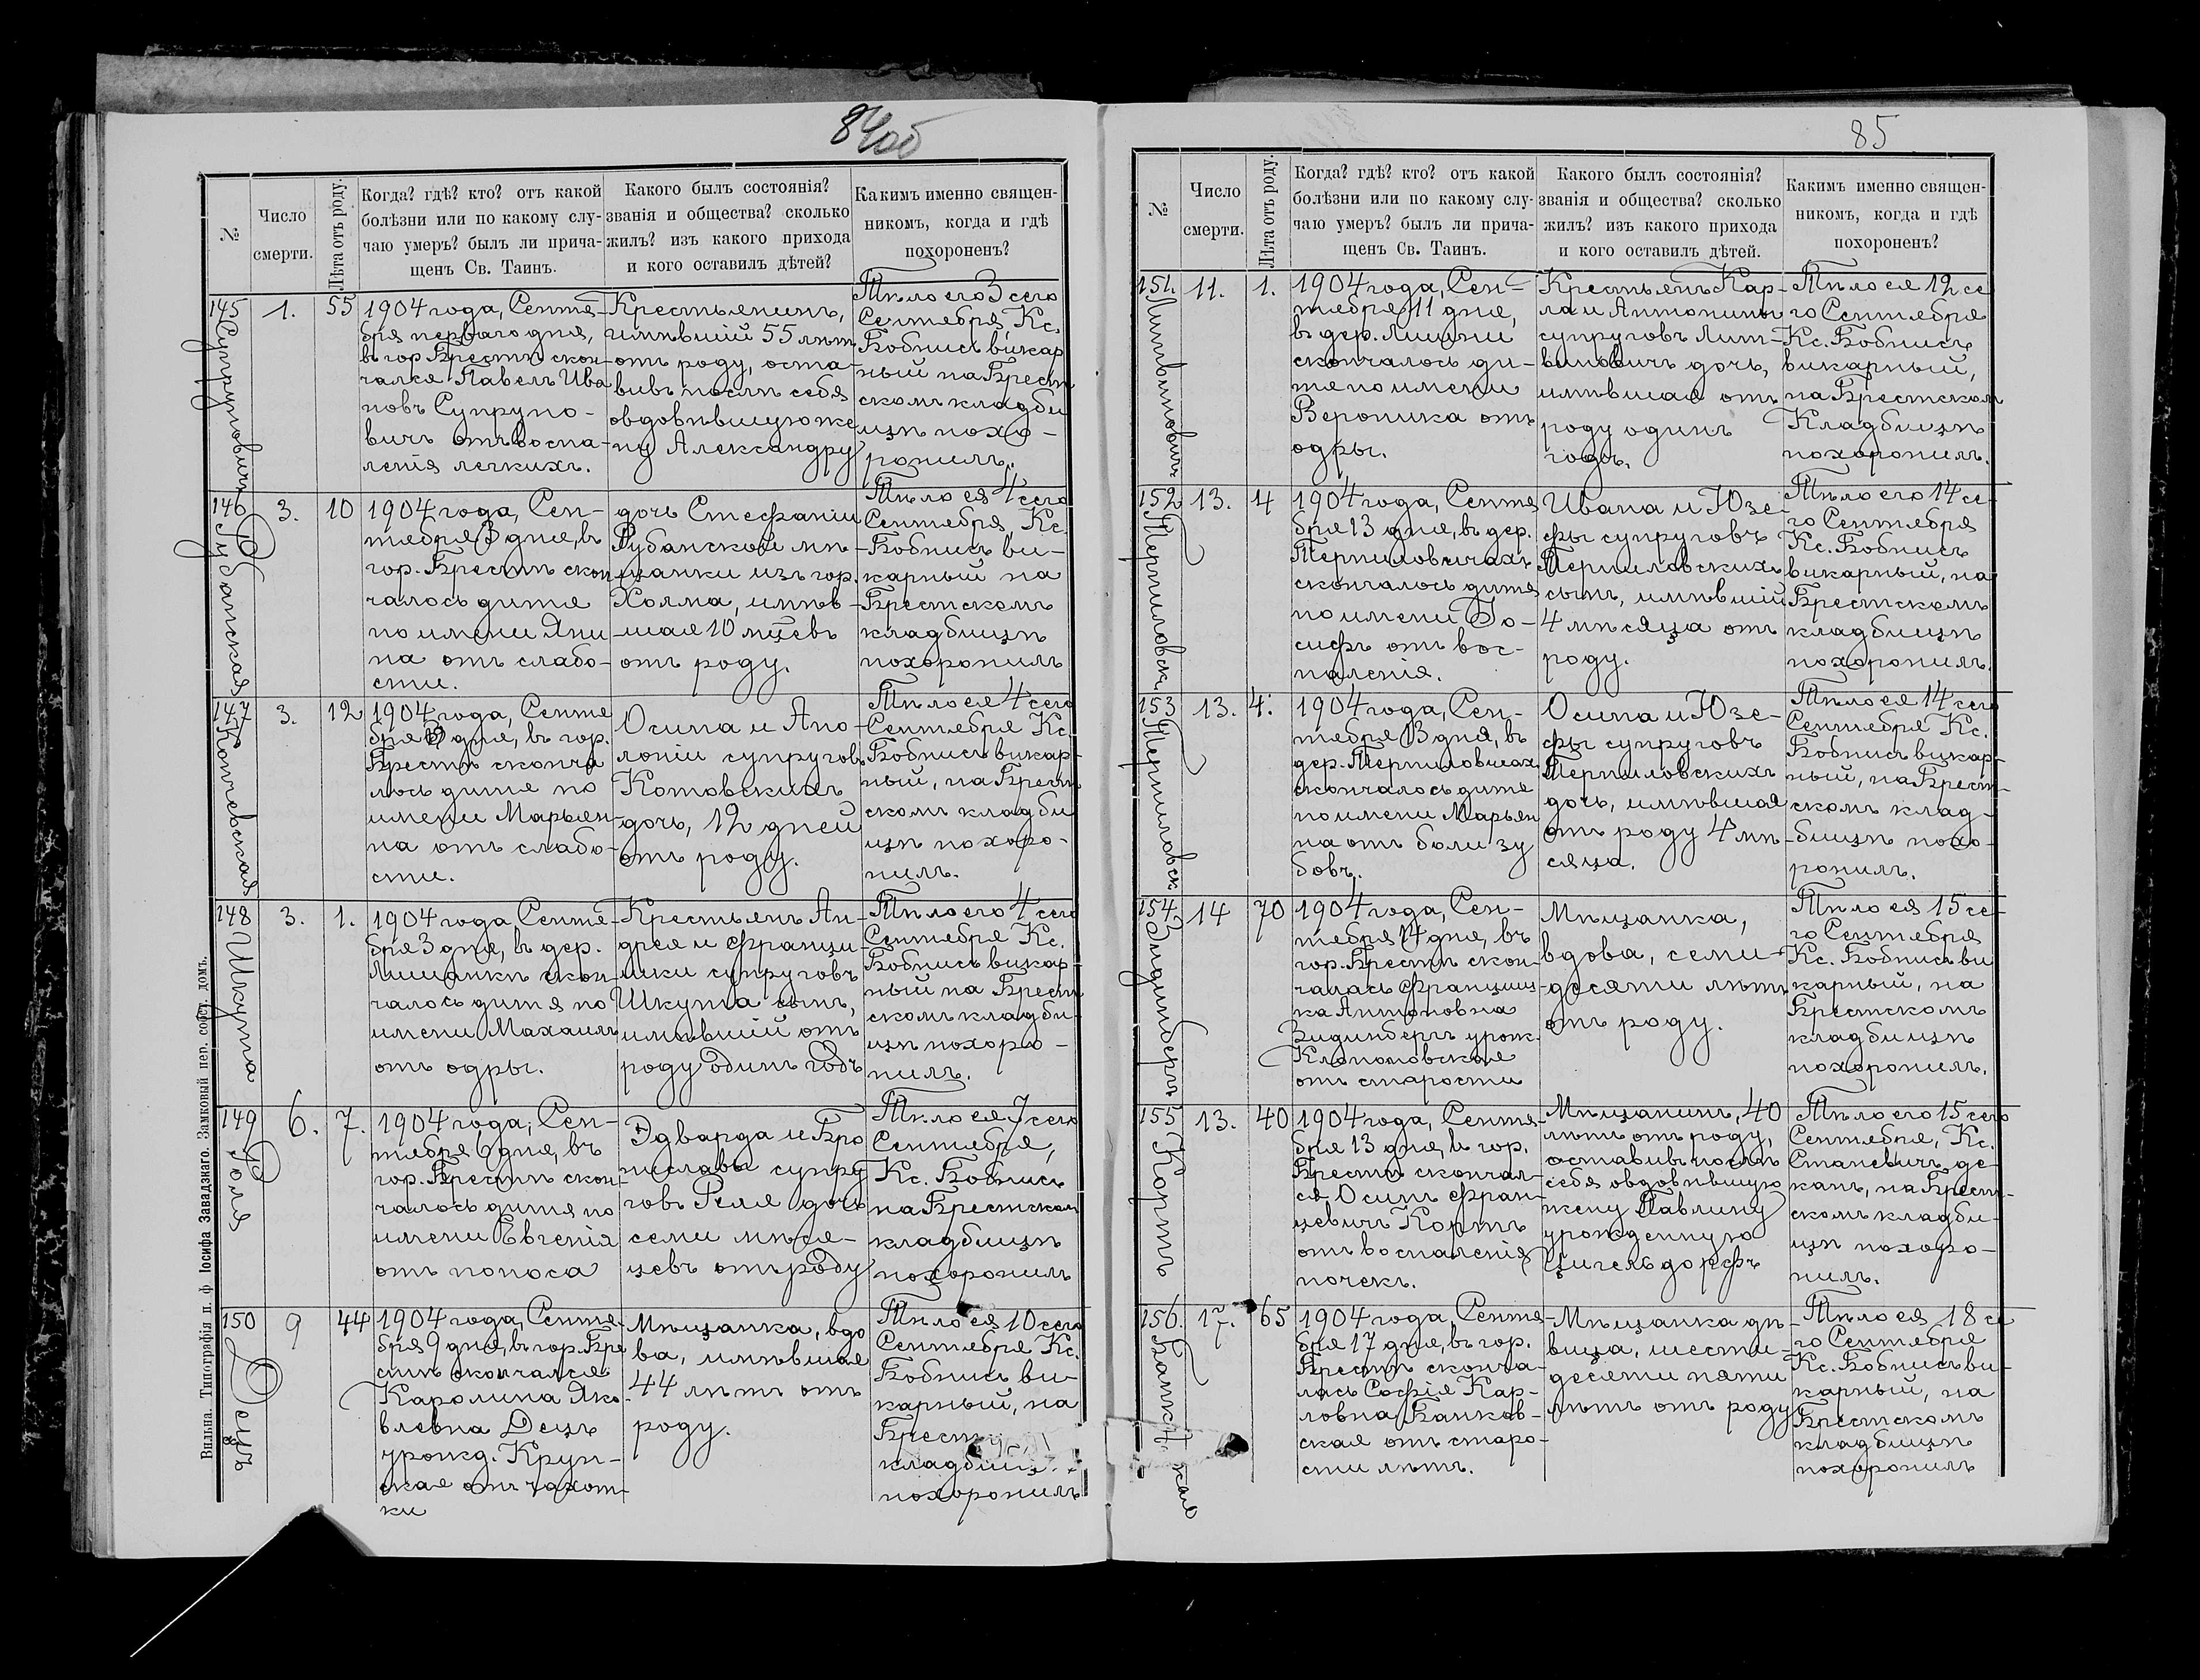 84
85
№
Число
смерти.
Лѣта отъ роду.
Когда? гдѣ? кто? отъ какой
болѣзни или по какому слу-
чаю умеръ? былъ ли прича-
щенъ Св. Таинъ.
Какого былъ состоянія?
званія и общества? сколько
жилъ? изъ какого прихода
и кого оставилъ дѣтей?
Какимъ именно священ-
никомъ, когда и гдѣ
похороненъ?
145
Супруновичъ
1.
55
1904 года, Сентя-
бря перваго дня,
въ гор. Брестѣ скон-
чался Павелъ Ива
новъ Супруно-
вичъ отъ воспа-
ленія легкихъ.
Крестьянинъ,
имѣвшій 55 лѣтъ
отъ роду, оста-
вивъ послѣ себя
овдовѣвшую же
ну Александру
Тѣло его 3 сего
Сентября, Кс.
Бобнисъ викар
ный на Брест
скомъ кладби
щѣ похо-
ронилъ.
146
Рубанская
3.
10
1904 года, Сен-
тября 3 дня, въ
гор. Брестѣ скон
чалось дитя
по имени Яни
на отъ слабо-
сти.
дочь Стефаніи
Рубанской мѣ-
щанки изъ гор.
Холма, имѣв-
шая 10 мцевъ
отъ роду.
Тѣло ея 4 сего
Сентября, Кс.
Бобнисъ ви-
карный на
Брестскомъ
кладбищѣ
похоронилъ
147
3.
12
1904 года, Сентя
бря 3 дня, въ гор.
Брестѣ сконча
лось дитя по
имени Марьян-
на отъ слабо-
сти.
Осипа и Апо-
лоніи супруговъ
Котовскихъ
дочь, 12 дней
отъ роду.
Тѣло ея 4 сего
Сентября Кс.
Бобнисъ викар
ный, на Брест
скомъ кладби
щѣ похоро-
нилъ.
148
Шкута
3.
1.
1904 года, Сентя-
бря 3 дня, въ дер.
скон-
чалось дитя по
имени Михаилъ
отъ одры.
Крестьянъ Ан-
дрея и Францы-
шки супруговъ
Шкута сынъ,
имѣвшій отъ
роду одинъ годъ
Тѣло его 4 сего
Сентября Кс.
Бобнисъ викар
ный на Брест
скомъ кладби-
щѣ похоро-
нилъ.
149
Роля
6.
7.
1904 года, Сен-
тября 6 дня, въ
гор. Брестѣ скон-
чалось дитя по
имени Евгенія
отъ поноса
Эдварда и Бро
ниславы супру
говъ Роля дочь
семи мѣся-
цевъ отъ роду
Тѣло ея 7 сего
Сентября,
Кс. Бобнисъ
на Брестском
кладбищѣ
похоронилъ
150
Децъ
9
44
1904 года, Сентя-
бря 9 дня, въ гор. Бре
стѣ скончался
Каролина Яко-
влевна Децъ
урожд. Круп-
ская отъ чахот-
ки
Мѣщанка, вдо
ва, имѣвшая
44 лѣтъ отъ
роду.
Тѣло ея 10 сего
Сентября Кс.
Бобнисъ ви-
карный, на
Брест
кладбищ
похоронилъ
Вильна. Типографія п. ф. Іосифа Завадзкаго. Замковый пер. собст. домъ.
№
Число
смерти.
Лѣта отъ роду.
Когда? гдѣ? кто? отъ какой
болѣзни или по какому слу-
чаю умеръ? былъ ли прича-
щенъ Св. Таинъ.
Какого былъ состоянія?
званія и общества? сколько
жилъ? изъ какого прихода
и кого оставилъ дѣтей.
Какимъ именно священ-
никомъ, когда и гдѣ
похороненъ?
151.
Литвиновичъ
11.
1.
1904 года, Сен-
тября 11 дня,
въ дер.
скончалось ди-
тя по имени
Вероника отъ
одры.
Крестьянъ Кар-
ла и Антонины
супруговъ Лит-
виновичъ дочь,
имѣвшая отъ
роду одинъ
годъ.
Тѣло ея 12 се
го Сентября
Кс. Бобнисъ
викарный,
на Брестском
Кладбищѣ
похоронилъ.
152
13.
4
1904 года, Сентя
бря 13 дня, въ дер.
Терпиловичахъ
скончалось дитя
по имени Іо-
сифъ отъ вос-
паленія.
Ивана и Юзе-
фы супруговъ
Терпиловскихъ
сынъ, имѣвшій
4 мѣсяца отъ
роду.
Тѣло его 14 се-
го Сентября
Кс. Бобнисъ
викарный, на
Брестскомъ
кладбищѣ
похоронилъ.
153
13.
4.
1904 года, Сен-
тября 13 дня, въ
дер. Терпиловичах
скончалось дитя
по имени Марьян
на отъ боли зу
бовъ.
Осипа и Юзе-
фы супруговъ
Терпиловскихъ
дочь, имѣвшая
отъ роду 4 мѣ-
сяца.
Тѣло ея 14 сего
Сентября Кс.
Бобнисъ викар-
ный, на Брест-
скомъ клад-
бищѣ похо-
ронилъ.
154
Зидинбергъ
14
70
1904 года, Сен-
тября 14 дня, въ
гор. Брестѣ скон-
чалась Франциш-
ка Антоновна
Зидинбергъ урож.
Клопоповская
отъ старости
Мѣщанка,
вдова, семи-
десяти лѣтъ
отъ роду.
Тѣло ея 15 се-
го Сентября
Кс. Бобнисъ ви
карный, на
Брестскомъ
кладбищѣ
похоронилъ.
155
Кортъ
13.
40
1904 года, Сентя-
бря 13 дня, въ гор.
Брестѣ скончал-
ся Осипъ Фран-
цевичъ Кортъ
отъ воспаленія
почекъ.
Мѣщанинъ, 40
лѣтъ отъ роду,
оставивъ послѣ
себя овдовѣвшую
жену Павлину
урожденную
Цигельдорфъ
Тѣло его 15 сего
Сентября, Кс.
Станевичъ де-
канъ, на Брест-
скомъ кладби-
щѣ похоро-
нилъ.
156.
17.
65
1904 года, Сентя-
бря 17 дня, въ гор.
Брестѣ сконча-
лась Софія Кар-
ловна Банков-
ская отъ старо-
сти лѣтъ.
Мѣщанка дѣ-
вица, шести-
десяти пяти
лѣтъ отъ роду
Тѣло ея 18 се
го Сентября
Кс. Бобнисъ ви-
карный, на
Брестскомъ
кладбищѣ
похоронилъ